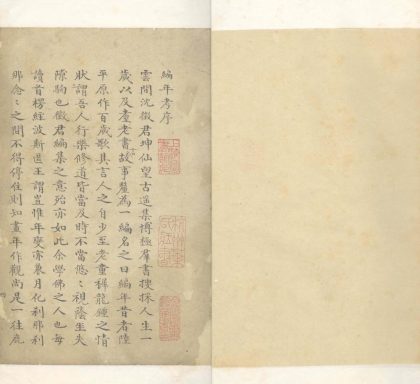 編年考序
雲間沈徵君坤仙望古遥集博極羣書搜採人生一
歲以及耄老書故事釐為一編名之曰編年昔者陸
平原作百歲歌其言人之自少至老童穉龍鍾之情
狀謂吾人行樂修道皆當及時不當悠〻視蔭坐失
隙駒也徵君編集之意殆亦如此余學佛之人也每
讀首楞經波斯匿王謂豈惟年變亦兼月化刹那刹
那念〻之間不得停住則知晝年作觀尚是一往麁